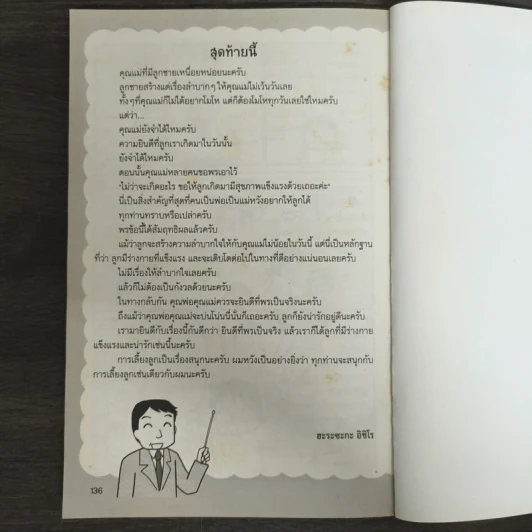 สุดท้ายนี้
คุณแม่ที่มีลูกชายเหนื่อยหน่อยนะครับ
ลูกชายสร้างแต่เรื่องลำบากๆ ให้คุณแม่ไม่เว้นวันเลย
ทั้งๆที่คุณแม่ก็ไม่ได้อยากโมโห แต่ก็ต้องโมโหทุกวันเลยใช่ไหมครับ
แต่ว่า...
คุณแม่ยังจำได้ไหมครับ
ความยินดีที่ลูกเราเกิดมาในวันนั้น
ยังจำได้ไหมครับ
ตอนนั้นคุณแม่หลายคนขอพรเอาไว้
"ไม่ว่าจะเกิดอะไร ขอให้ลูกเกิดมามีสุขภาพแข็งแรงด้วยเถอะค่ะ"
นี่เป็นสิ่งสำคัญที่สุดที่คนเป็นพ่อเป็นแม่หวังอยากให้ลูกได้
ทุกท่านทราบหรือเปล่าครับ
พรข้อนี้ได้สัมฤทธิผลแล้วครับ
แม้ว่าลูกจะสร้างความลำบากใจให้กับคุณแม่ไม่น้อยในวันนี้ แต่นี่เป็นหลักฐาน
ที่ว่า ลูกมีร่างกายที่แข็งแรง และจะเติบโตต่อไปในทางที่ดีอย่างแน่นอนเลยครับ
ไม่มีเรื่องให้ลำบากใจเลยครับ
แล้วก็ไม่ต้องเป็นกังวลด้วยนะครับ
ในทางกลับกัน คุณพ่อคุณแม่ควรจะยินดีที่พรเป็นจริงนะครับ
ถึงแม้ว่าคุณพ่อคุณแม่จะบ่นโน่นนี่นั่นก็เถอะครับ ลูกก็ยังน่ารักอยู่ดีนะครับ
เรามายินดีกับเรื่องนี้กันดีกว่า ยินดีที่พรเป็นจริง แล้วเราก็ได้ลูกที่มีร่างกาย
แข็งแรงและน่ารักเช่นนี้นะครับ
การเลี้ยงลูกเป็นเรื่องสนุกนะครับ ผมหวังเป็นอย่างยิ่งว่า ทุกท่านจะสนุกกับ
การเลี้ยงลูกเช่นเดียวกับผมนะครับ
ฮะระซะกะ อิชิโร
136